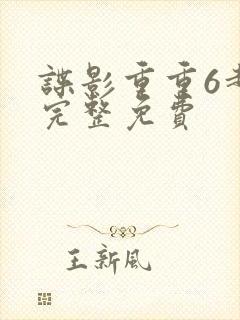 諜影重重6
完整免費
王新風